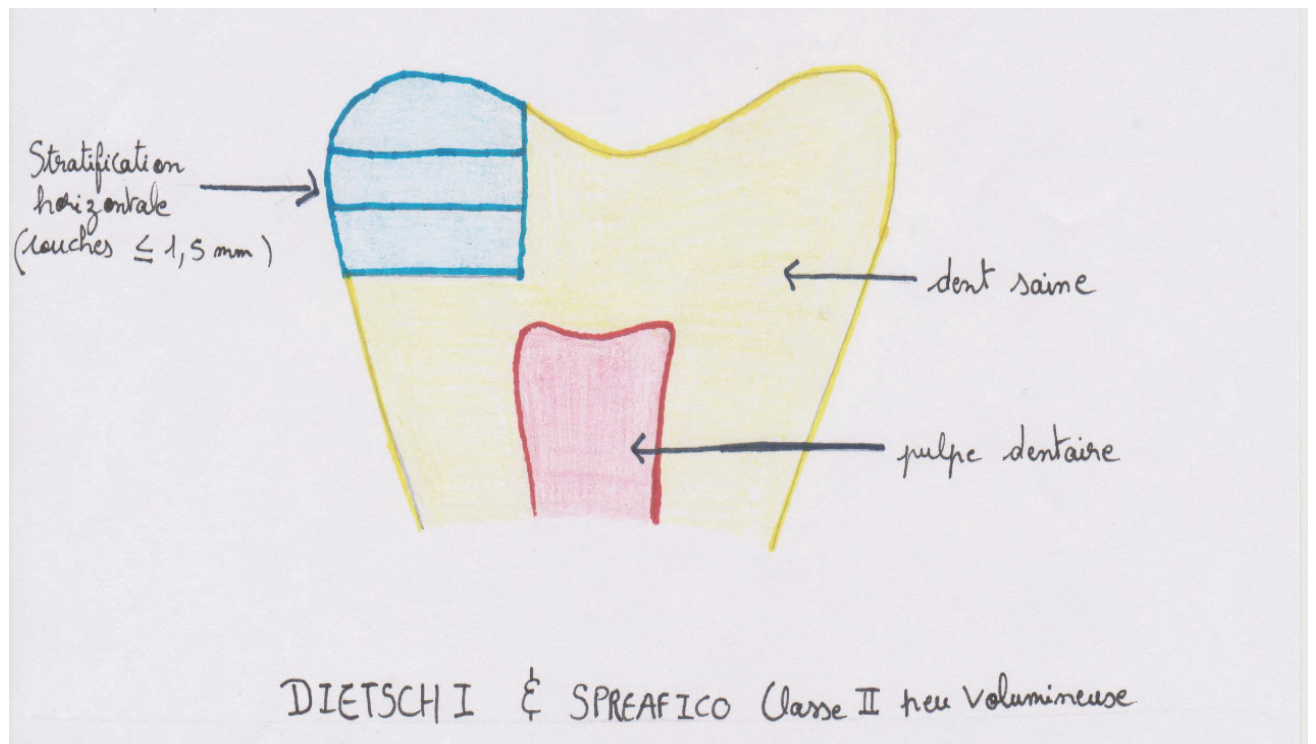 Stratification
horizontale
(couches ≤ 1,5 mm)
dent saine
pulpe dentaire
DIETSCHI & SPREAFICO Classe II peu Volumineuse